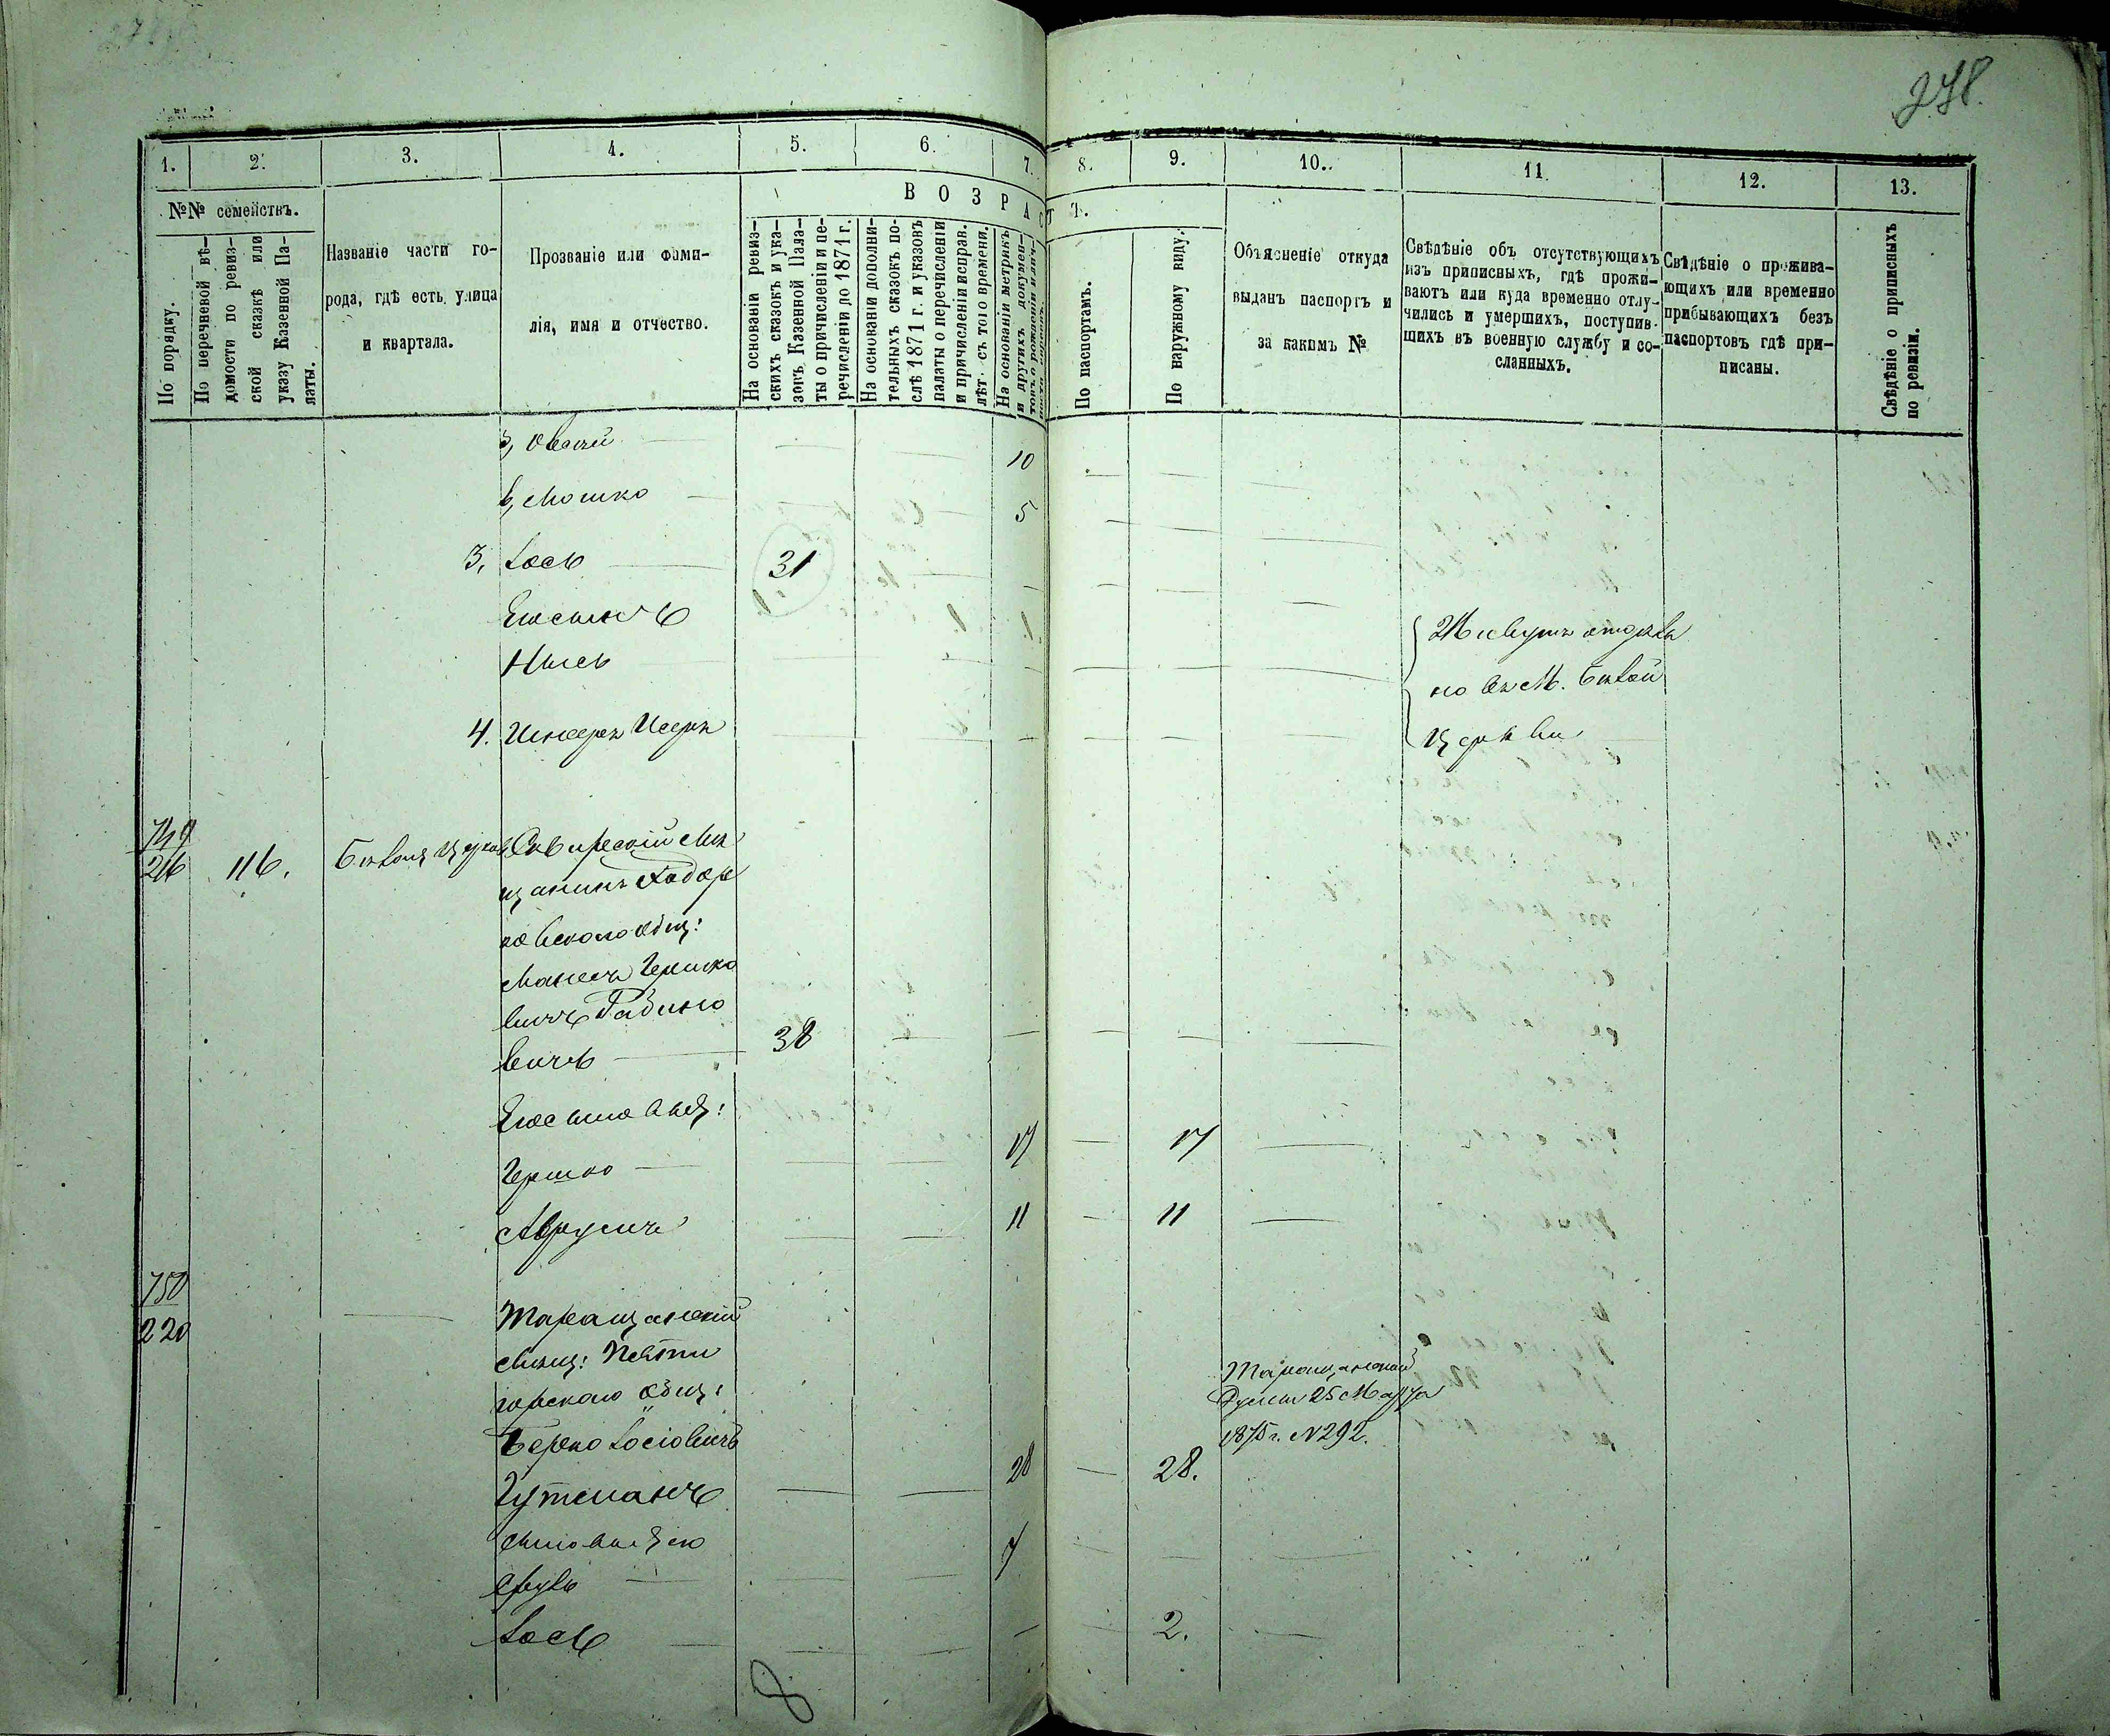 278.
1.
2.
3.
4.
5.
6.
7.
8.
9.
10.
11.
12.
13.
№№ семействъ.
По порядку.
По перечневой вѣ-
домости по ревиз-
ской сказкѣ или
указу Казенной Па-
латы.
Названіе части го-
рода, гдѣ есть улица
и квартала.
Прозваніе или фами-
лія, имя и отчество.
ВОЗРАСТЪ.
На основаніи ревиз-
скихъ сказокъ и ука-
зовъ Казенной Пала-
ты о причисленіи и пе-
речисленіи до 1871 г.
На основаніи дополни-
тельныхъ сказокъ по-
слѣ 1871 г. и указовъ
палаты о перечисленіи
и причисленіи исправ.
лѣт. съ того времени.
На основаніи метрикъ
и другихъ докумен-
По паспортамъ.
По наружному виду.
Объясненіе откуда
выданъ паспортъ и
за какимъ №
Свѣдѣніе объ отсутствующихъ
изъ приписныхъ, гдѣ прожи-
ваютъ или куда временно отлу-
чились и умершихъ, поступив-
шихъ въ военную службу и со-
сланныхъ.
Свѣдѣніе о прожива-
ющихъ или временно
прибывающихъ безъ
паспортовъ гдѣ при-
писаны.
Свѣдѣніе о приписныхъ
по ревизіи.
10
Мошко 5
3, Іось 31
4.
Живутъ отдѣль
но въ М. Бѣлой
Церкви
749
216 116. Сквирскій Мѣ
щанинъ Ходор
ковскаго общ:
Гершко
вичъ Рабино
вичъ 38
Гершко 17 17
11 11
750
220 Таращанскій
Мѣщ: Пяти
горскаго общ:
Берко Іосіовичъ
Гутманъ 28 28.
Таращанской
Думы 25 Марта
1875 г. № 292.
Сруль 7
Іось 2.
8